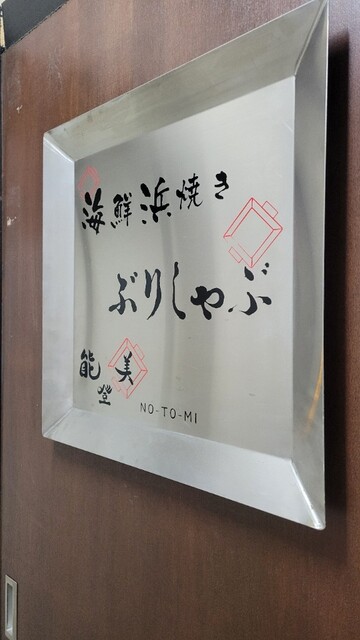 海鮮浜焼き
ぶりしゃぶ
能登美
NO-TO-MI